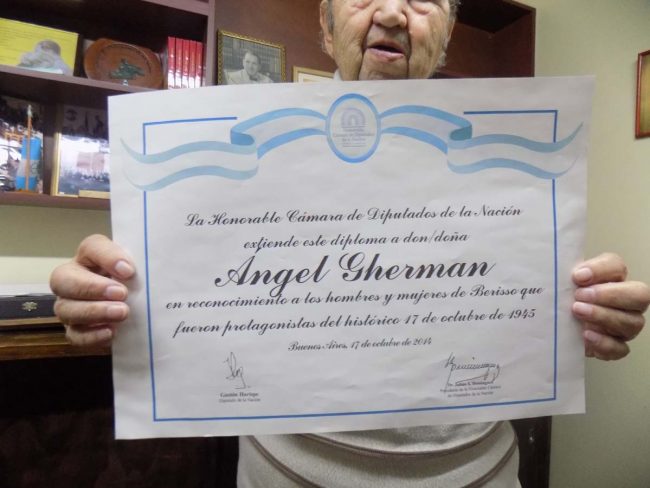 La Honorable Cámara de Diputados de la Nación
extiende este diploma a don/doña
Ángel Gherman
en reconocimiento a los hombres y mujeres de Berisso que
fueron protagonistas del histórico 17 de octubre de 1945
Buenos Aires, 17 de octubre de 2014
Gastón Harispe
Diputado de la Nación
Dr. Julián A. Domínguez
Presidente de la Honorable Cámara
de Diputados de la Nación